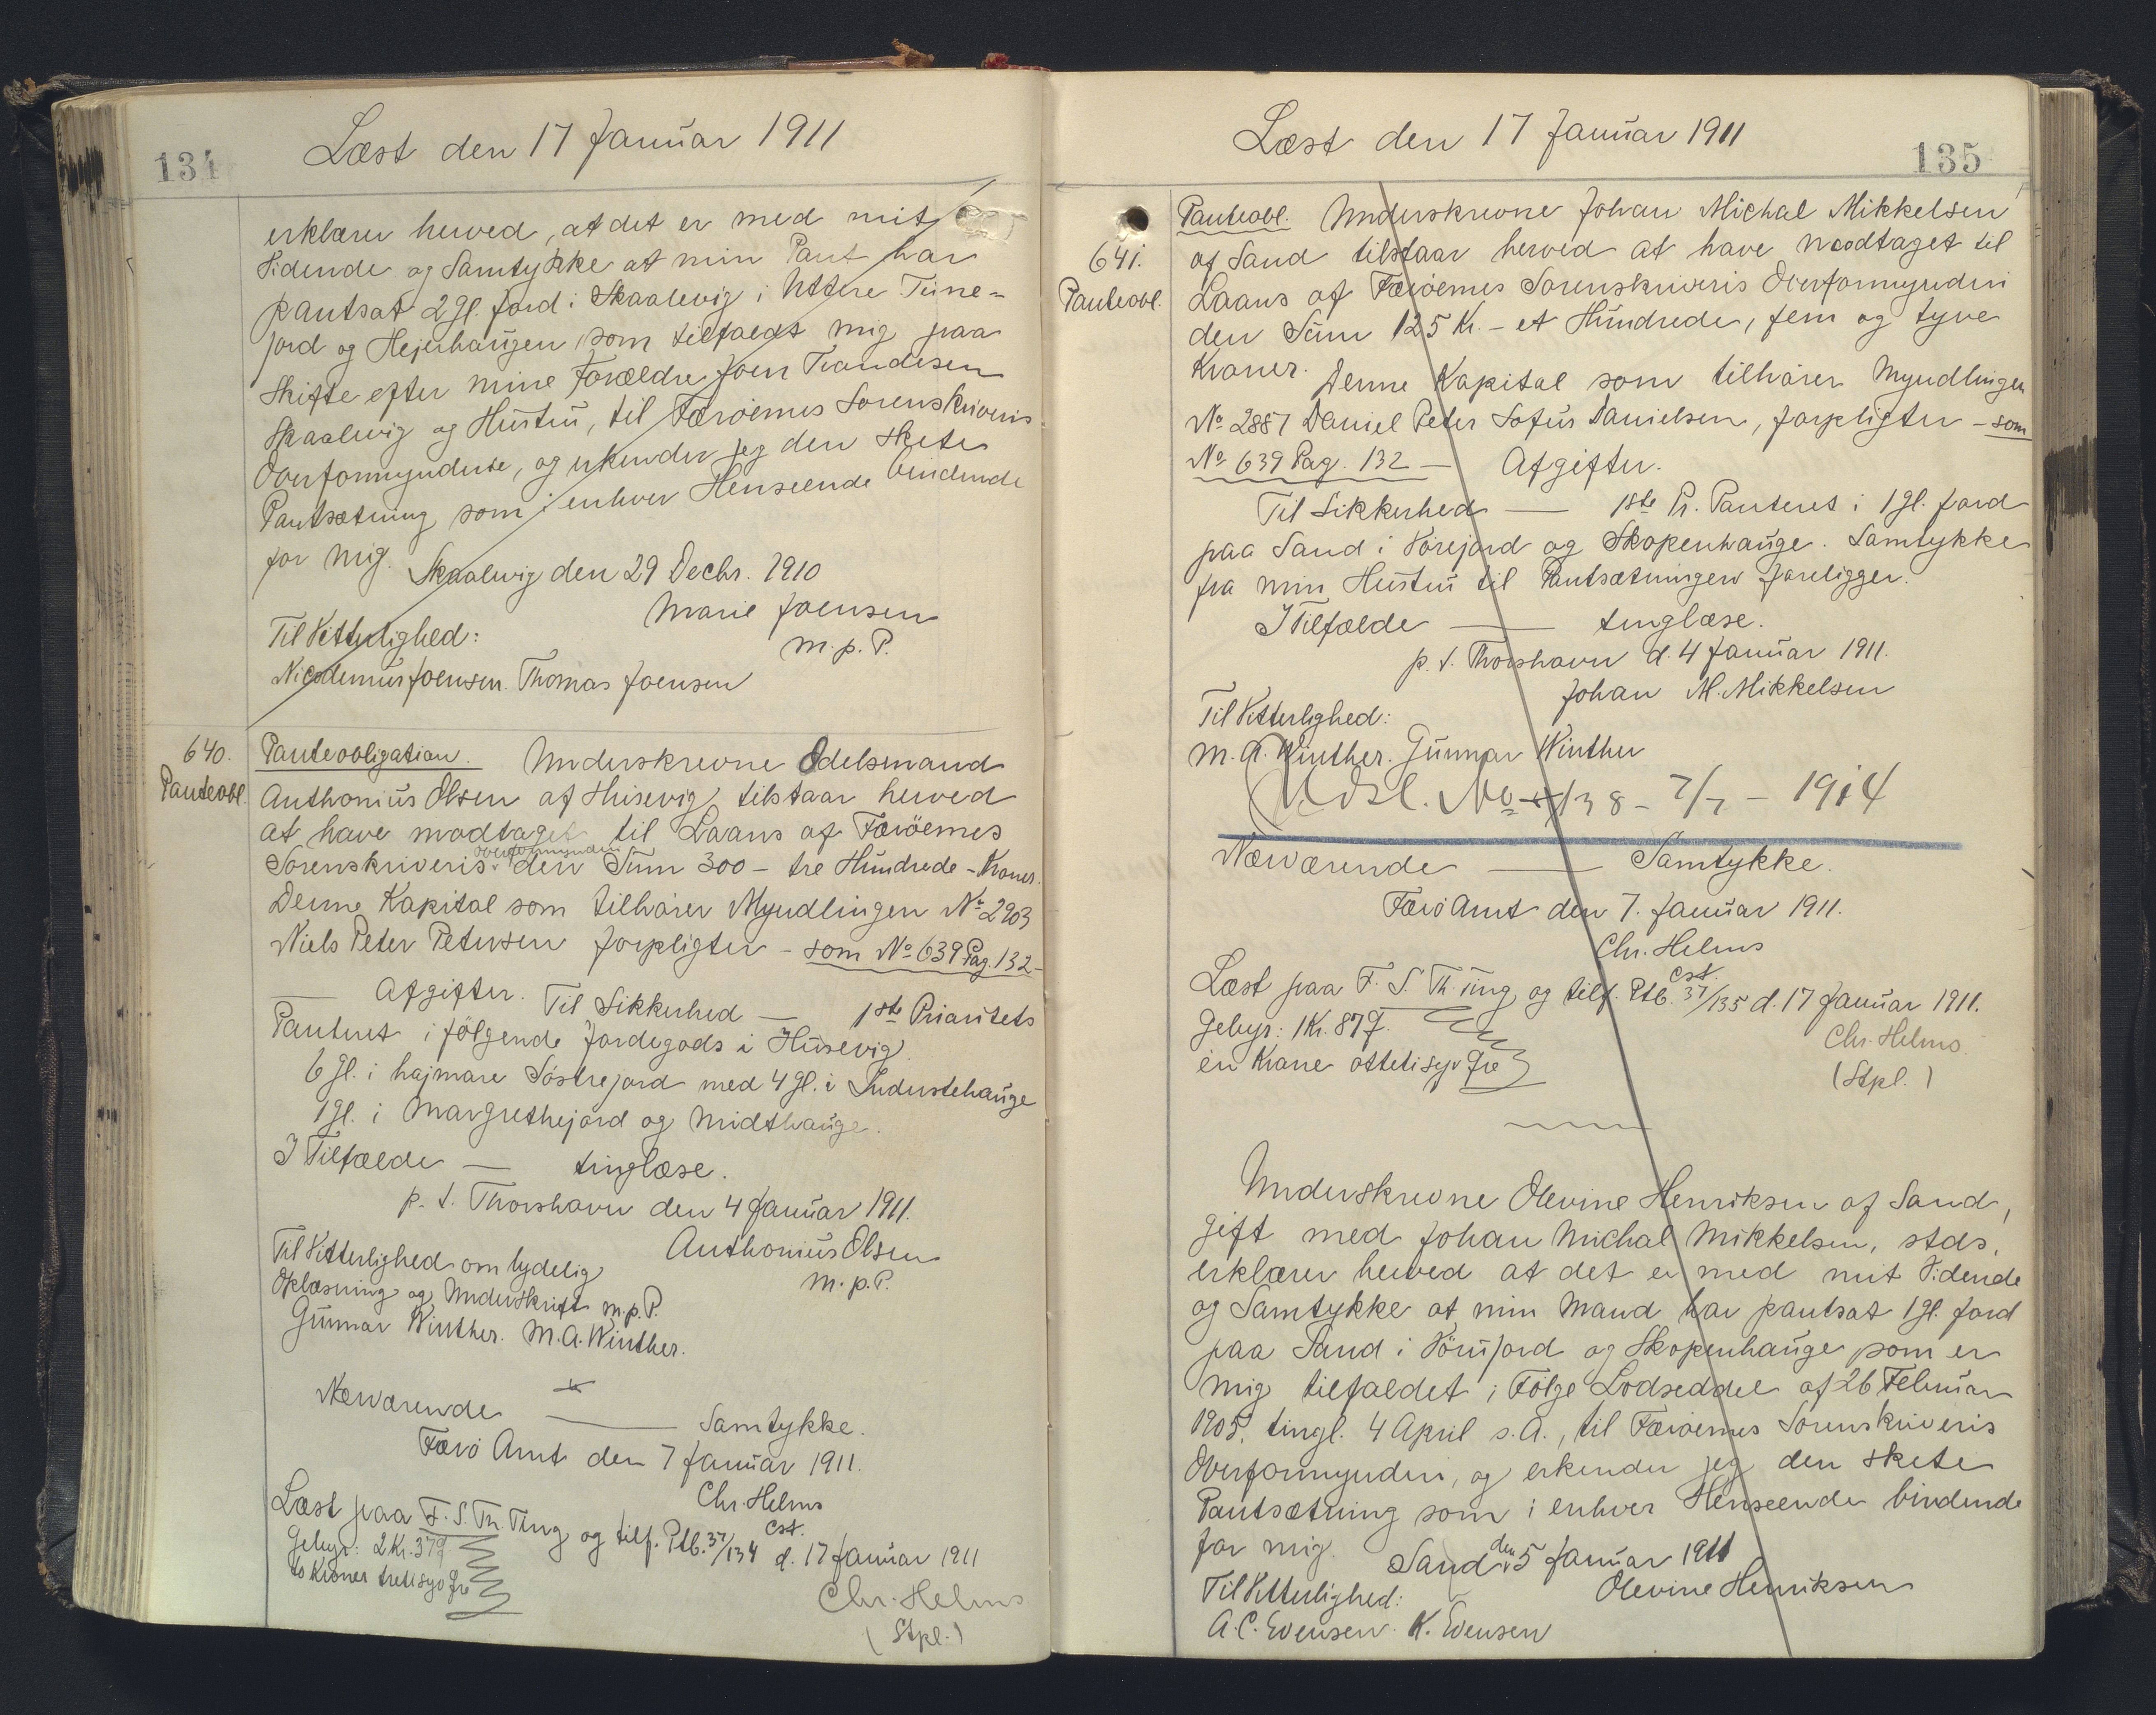 134
Læst den 17 Januar 1911
erklærer herved, at det er med mit
Vidende og Samtykke at min Pant har
pantsat 2 gl. Jord i Skaalevig i Uttere Tune-
jord og Hejerhaugen, som tilfaldt mig paa
Skifte efter mine Forældre Joen Trondesen
Skaalevig og Hustru, til Færöernes Sorenskriveris
Overformynderie, og erkender jeg den skete
Pantsætning som i enhver Henseende bindende
for mig.
Skaalevig den 29 Decbr. 1910
Marie Joensen
m. p. P.
Til Vitterlighed:
Nicodemus Joensen. Thomas Joensen
640.
Panteobl.
Panteobligation. Underskrevne Odelsmand
Anthonius Olsen af Husevig tilstaar herved
at have modtaget til Laans af Færöernes
Sorenskriveris overformynderi den Sum 300 - tre Hundrede - Kroner.
Denne Kapital som tilhörer Myndlingen No 2903
Niels Peter Petersen forpligter - som No 639 Pag. 132 -
Afgifter. Til Sikkerhed — 1ste Prioritets
Panteret i fölgende Jordegods i Husevig
6 gl. i hajmare Söstrejord med 4 gl. i Inderstehauge
1 gl. i Margrethejord og Midthauge.
I Tilfælde — tinglæse.
p. t. Thorshavn den 4 Januar 1911.
Anthonius Olsen
m. p. P.
Til Vitterlighed om lydelig
Oplæsning og Underskrift m. p. P.
Gunnar Winther. M. A. Winther.
Nærværende — Samtykke.
Færö Amt den 7 Januar 1911.
Chr. Helms
cst.
Læst paa F. S. Th. Ting og tilf. Ptb. 37/134 d. 17 Januar 1911
Gebyr: 2 Kr. 37 Ø
to Kroner tretisyv Øre
Chr. Helms
(Stpl.)
Læst den 17 Januar 1911
135
641.
Panteobl.
Panteobl. Underskrevne Johan Michal Mikkelsen
af Sand tilstaar herved at have modtaget til
Laans af Færöernes Sorenskriveris Overformynderi
den Sum 125 Kr. - et Hundrede, fem og tyve
Kroner. Denne Kapital som tilhörer Myndlingen
No 2887 Daniel Peter Sofus Danielsen, forpligter - som
No 639 Pag. 132 — Afgifter.
Til Sikkerhed — 1ste Pr. Panteret i 1 gl. Jord
paa Sand i Vörejord og Skopenhauge. Samtykke
fra min Hustru til Pantsætningen foreligger.
I Tilfælde — tinglæse.
p. t. Thorshavn d. 4 Januar 1911.
Johan M. Mikkelsen
Til Vitterlighed:
M. A. Winther. Gunnar Winther
Udsl. No 138 - 7/7 - 1914
Nærværende — Samtykke.
Færö Amt den 7. Januar 1911.
Chr. Helms
cst.
Læst paa F. S. Th. Ting og tilf. Ptb. 37/135 d. 17 Januar 1911.
Gebyr: 1 Kr. 87 Ø.
en Krone ottetisyv Øre
Chr. Helms
(Stpl.)
Underskrevne Olevine Henriksen af Sand,
gift med Johan Michal Mikkelsen, stds.
erklærer herved at det er med mit Vidende
og Samtykke at min Mand har pantsat 1 gl. Jord
paa Sand i Vörujord og Skopenhauge som er
mig tilfaldet i Fölge Lodseddel af 26 Februar
1905, tingl. 4 April s. A., til Færöernes Sorenskriveris
Overformynderi, og erkender jeg den skete
Pantsætning som i enhver Henseende bindende
for mig.
Sand den 5 Januar 1911
Olevine Henriksen
Til Vitterlighed:
A. C. Evensen. K. Evensen